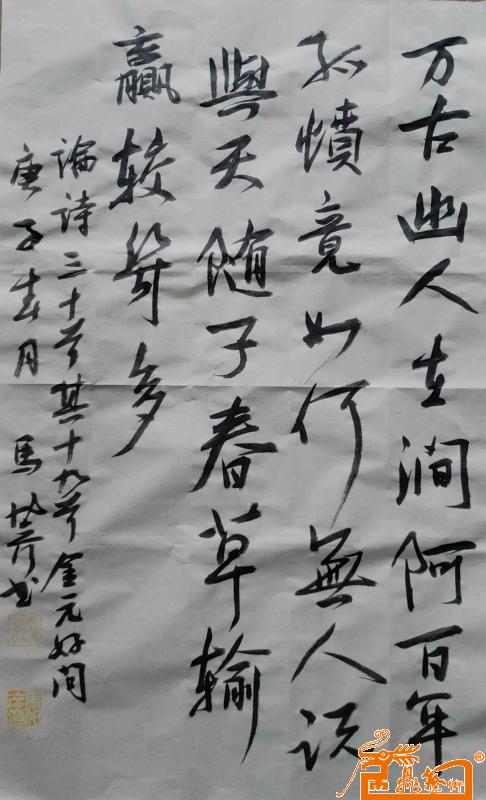 万古幽人在涧阿百年
孤愤竟如何無人说
與天随子春草输
赢较幾多
論詩三十首其十九首金元好问
庚子春月 馬
书